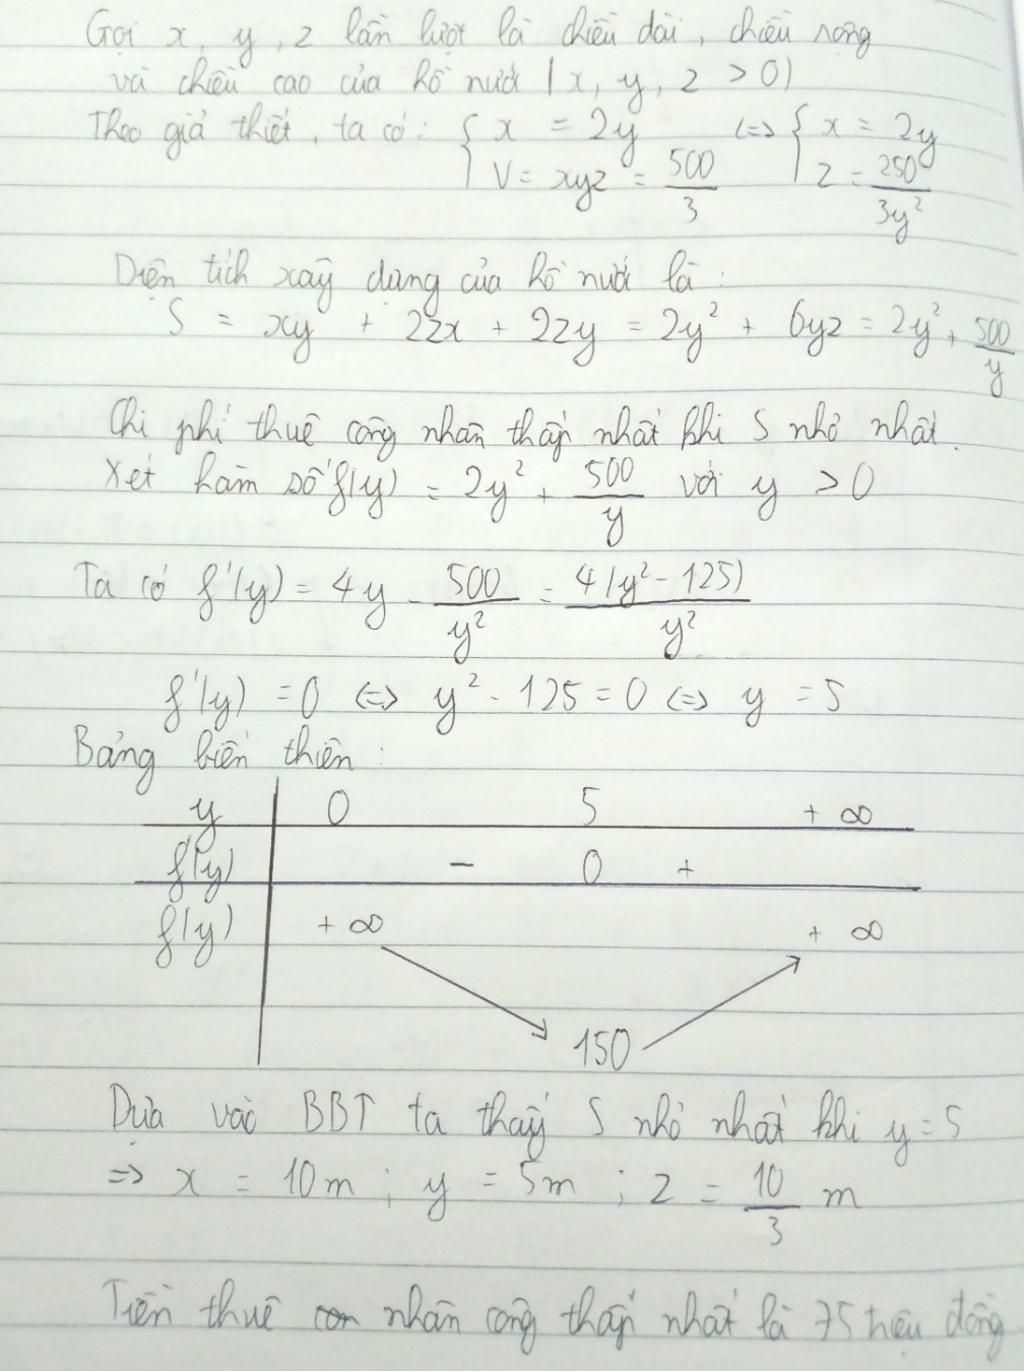 Gọi x, y, z lần lượt là chiều dài, chiều rộng
và chiều cao của hồ nước (x, y, z > 0)
Theo giả thiết, ta có: { x = 2y ; V = xyz = 500/3 <=> { x = 2y ; z = 250/3y²
Diện tích xây dựng của hồ nước là:
S = xy + 2zx + 2zy = 2y² + 6yz = 2y² + 500/y
Chi phí thuê công nhân thấp nhất khi S nhỏ nhất.
Xét hàm số f(y) = 2y² + 500/y với y > 0
Ta có f'(y) = 4y - 500/y² = 4(y² - 125)/y²
f'(y) = 0 <=> y² - 125 = 0 <=> y = 5
Bảng biến thiên:
y 0 5 + ∞
f'(y) - 0 +
f(y) + ∞ + ∞
150
Dựa vào BBT ta thấy S nhỏ nhất khi y = 5
=> x = 10m ; y = 5m ; z = 10/3 m
Tiền thuê nhân công thấp nhất là 75 triệu đồng